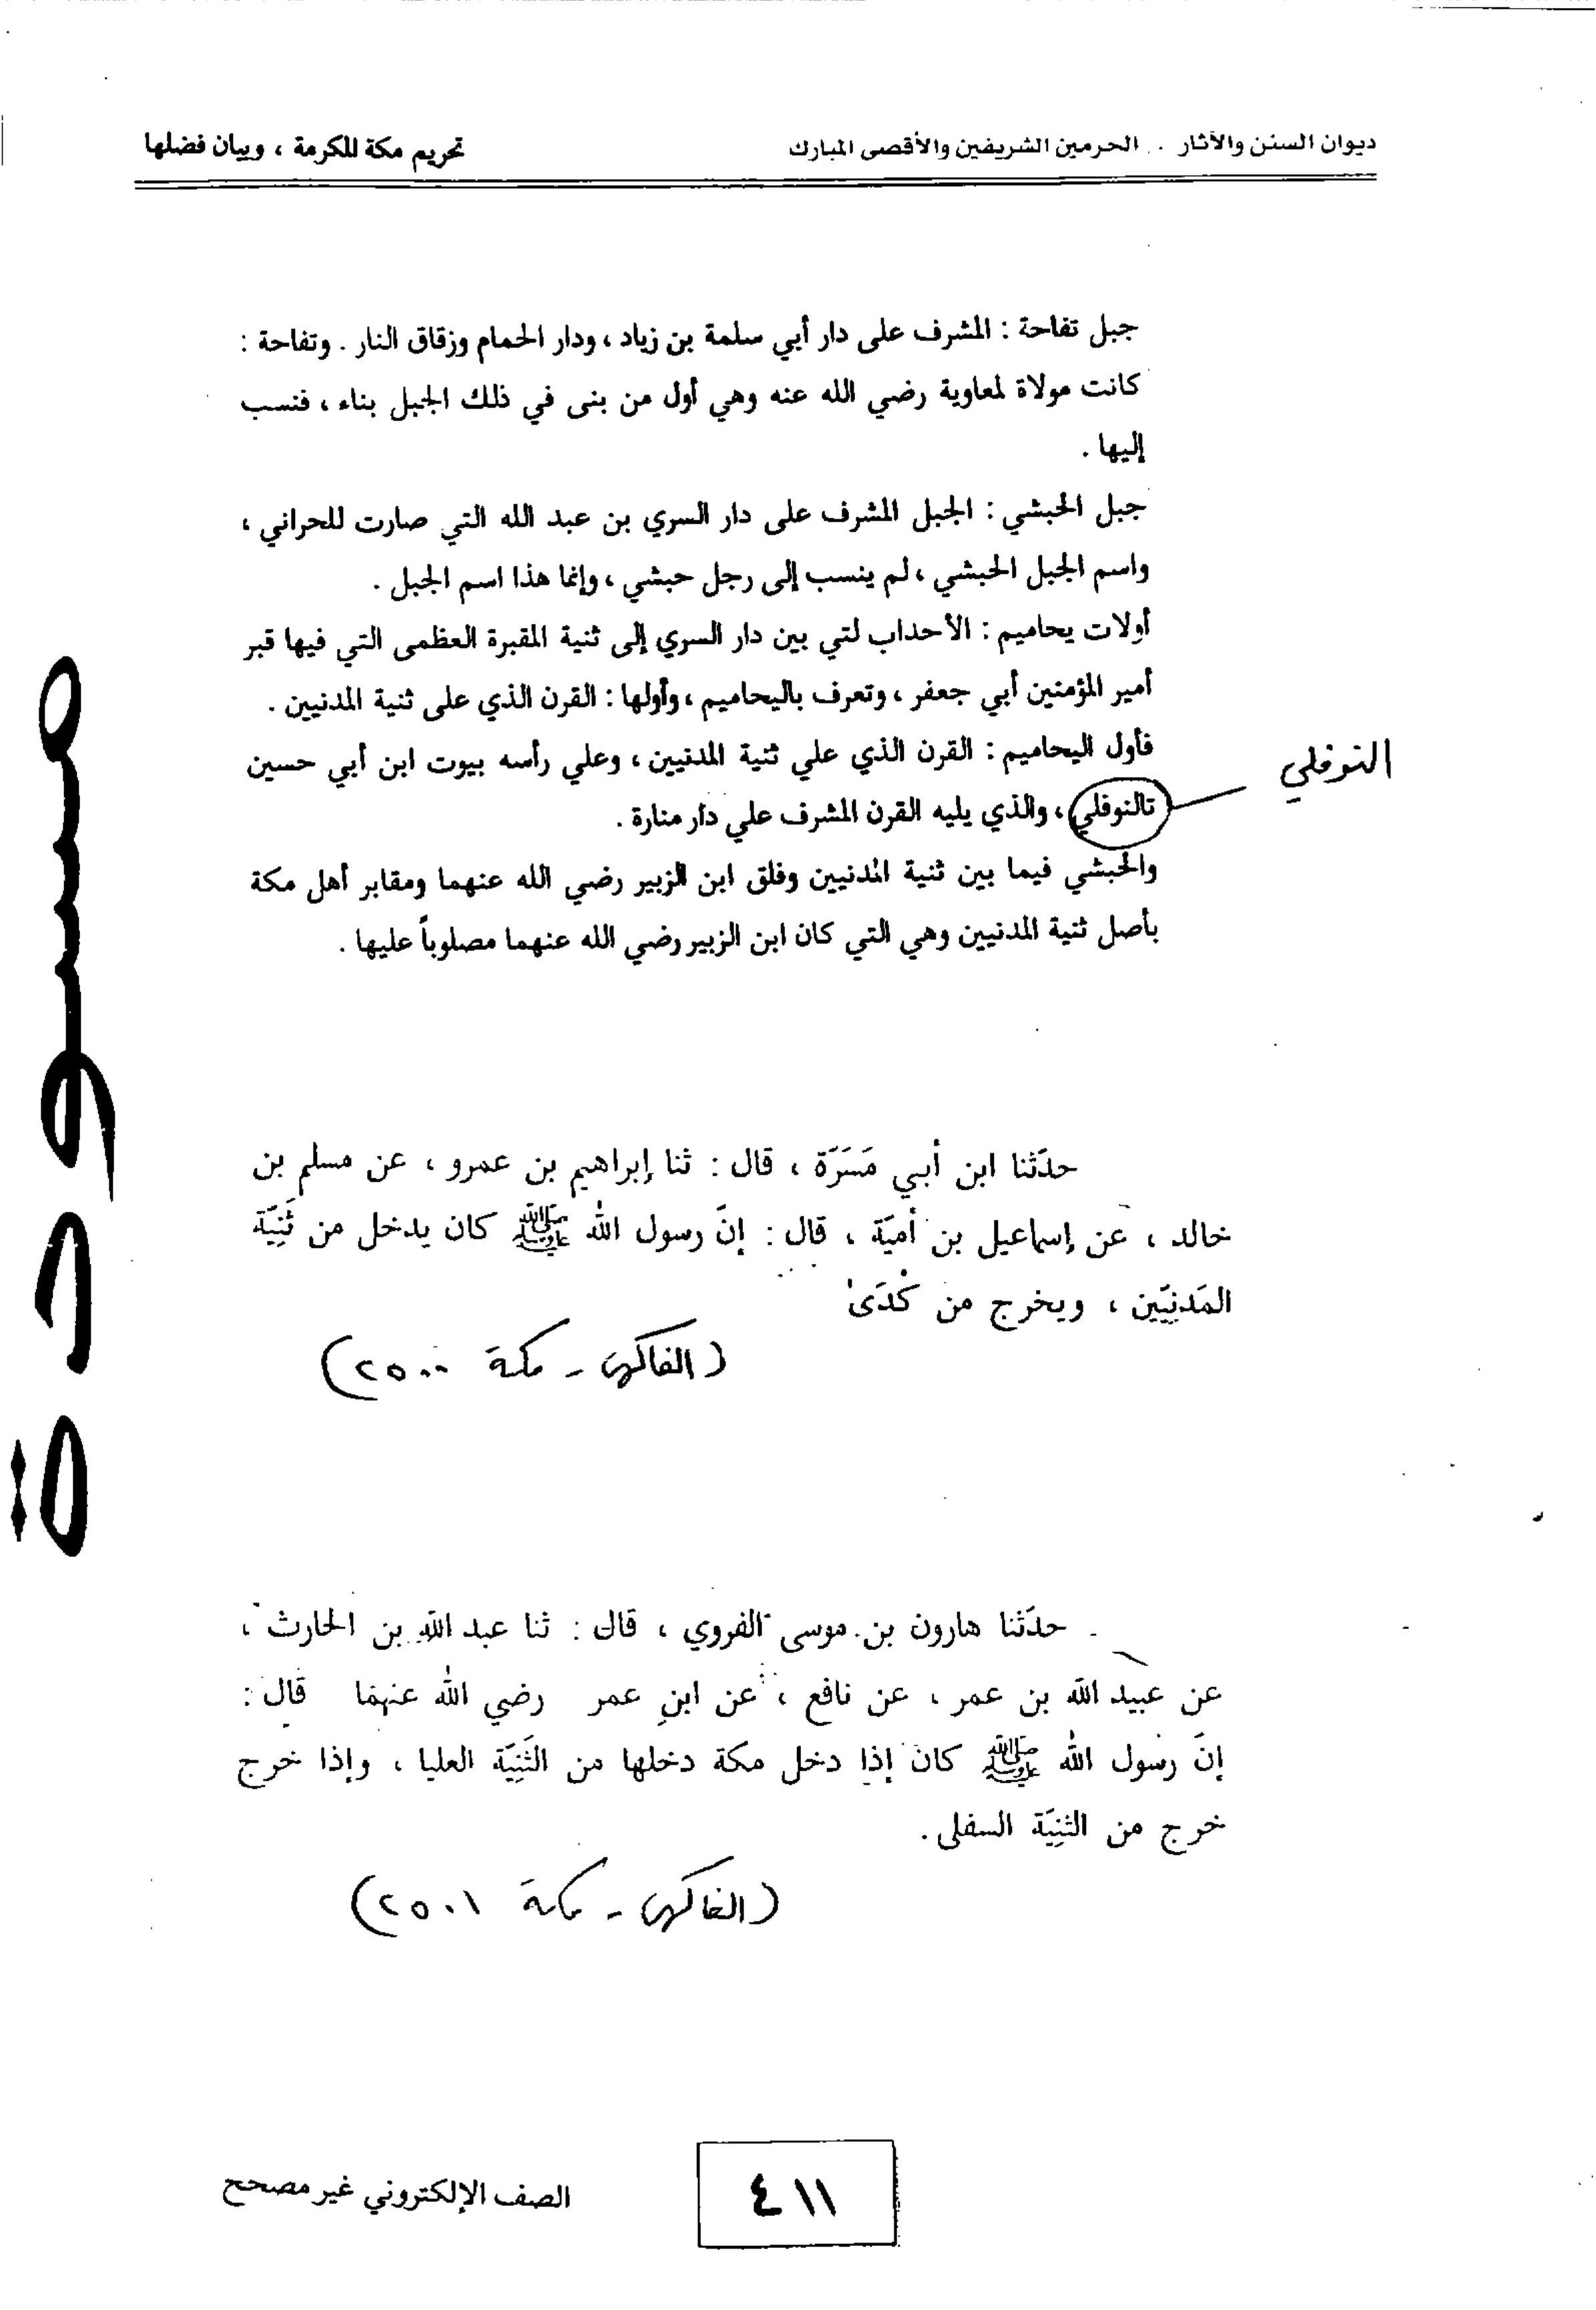 ديوان السنن والآثار . . الحرمين الشريفين والأقصى المبارك
تحريم مكة المكرمة ، وبيان فضلها
جبل تفاحة : المشرف على دار أبي سلمة بن زياد ، ودار الحمام وزقاق النار . وتفاحة :
كانت مولاة لمعاوية رضي الله عنه وهي أول من بنى في ذلك الجبل بناء ، فنسب
إليها .
جبل الحبشي : الجبل المشرف على دار السري بن عبد الله التي صارت للحراني ،
واسم الجبل الحبشي ، لم ينسب إلى رجل حبشي ، وإنما هذا اسم الجبل .
أولات يحاميم : الأحداب لتي بين دار السري إلى ثنية المقبرة العظمى التي فيها قبر
أمير المؤمنين أبي جعفر ، وتعرف باليحاميم ، وأولها : القرن الذي على ثنية المدنيين .
فأول اليحاميم : القرن الذي علي ثنية المدنيين ، وعلي رأسه بيوت ابن أبي حسين
النوفلي
تالنوفلي ، والذي يليه القرن المشرف علي دار منارة .
والحبشي فيما بين ثنية المدنيين وفلق ابن الزبير رضي الله عنهما ومقابر أهل مكة
بأصل ثنية المدنيين وهي التي كان ابن الزبير رضي الله عنهما مصلوباً عليها .
حدّثنا ابن أبي مَسَرّة ، قال : ثنا إبراهيم بن عمرو ، عن مسلم بن
خالد ، عن إسماعيل بن أميّة ، قال : إنّ رسول الله ﷺ كان يدخل من ثَنِيّة
المَدنيّين ، ويخرج من كُدَى
(الفاكهي - مكة ٢٥٠٠)
حدّثنا هارون بن موسى الفروي ، قال : ثنا عبد الله بن الحارث ،
عن عبيد الله بن عمر ، عن نافع ، عن ابن عمر رضي الله عنهما قال :
إنّ رسول الله ﷺ كان إذا دخل مكة دخلها من الثَنِيّة العليا ، وإذا خرج
خرج من الثنِيّة السفلى .
(الفاكهي - مكة ٢٥٠١)
مسودة
٤١١
الصف الإلكتروني غير مصحح